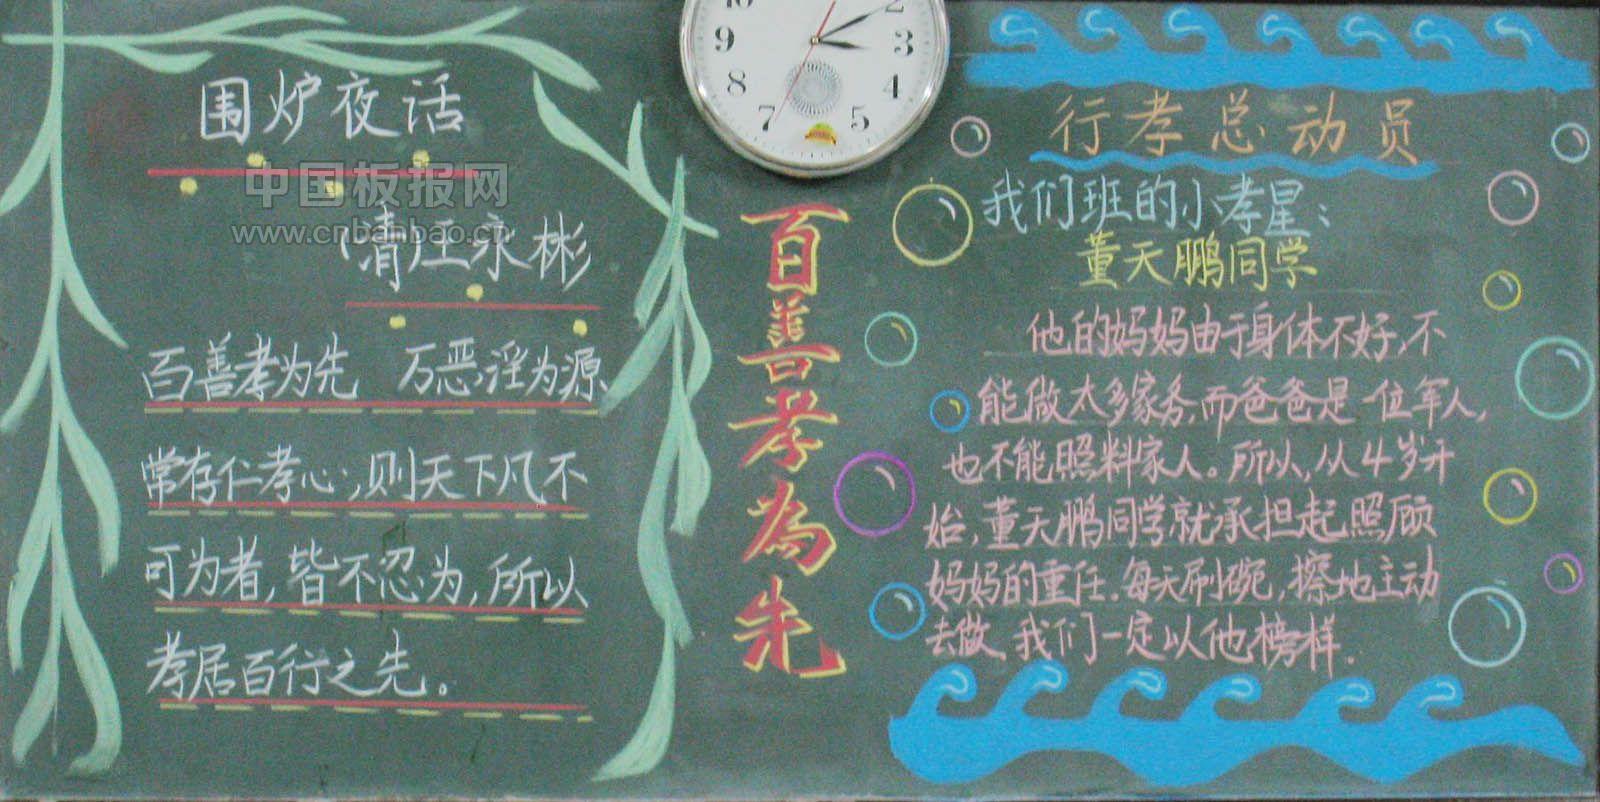 围炉夜话
(清)王永彬
百善孝为先 万恶淫为源
常存仁孝心,则天下凡不
可为者,皆不忍为,所以
孝居百行之先。
中国板报网
www.cnbanbao.cn
10
9
8
7
5
4
3
2
百善孝為先
行孝总动员
我们班的小孝星:
董天鹏同学
他的妈妈由于身体不好,不
能做太多家务,而爸爸是一位军人,
也不能照料家人。所以,从4岁开
始,董天鹏同学就承担起照顾
妈妈的重任.每天刷碗,擦地主动
去做.我们一定以他榜样.